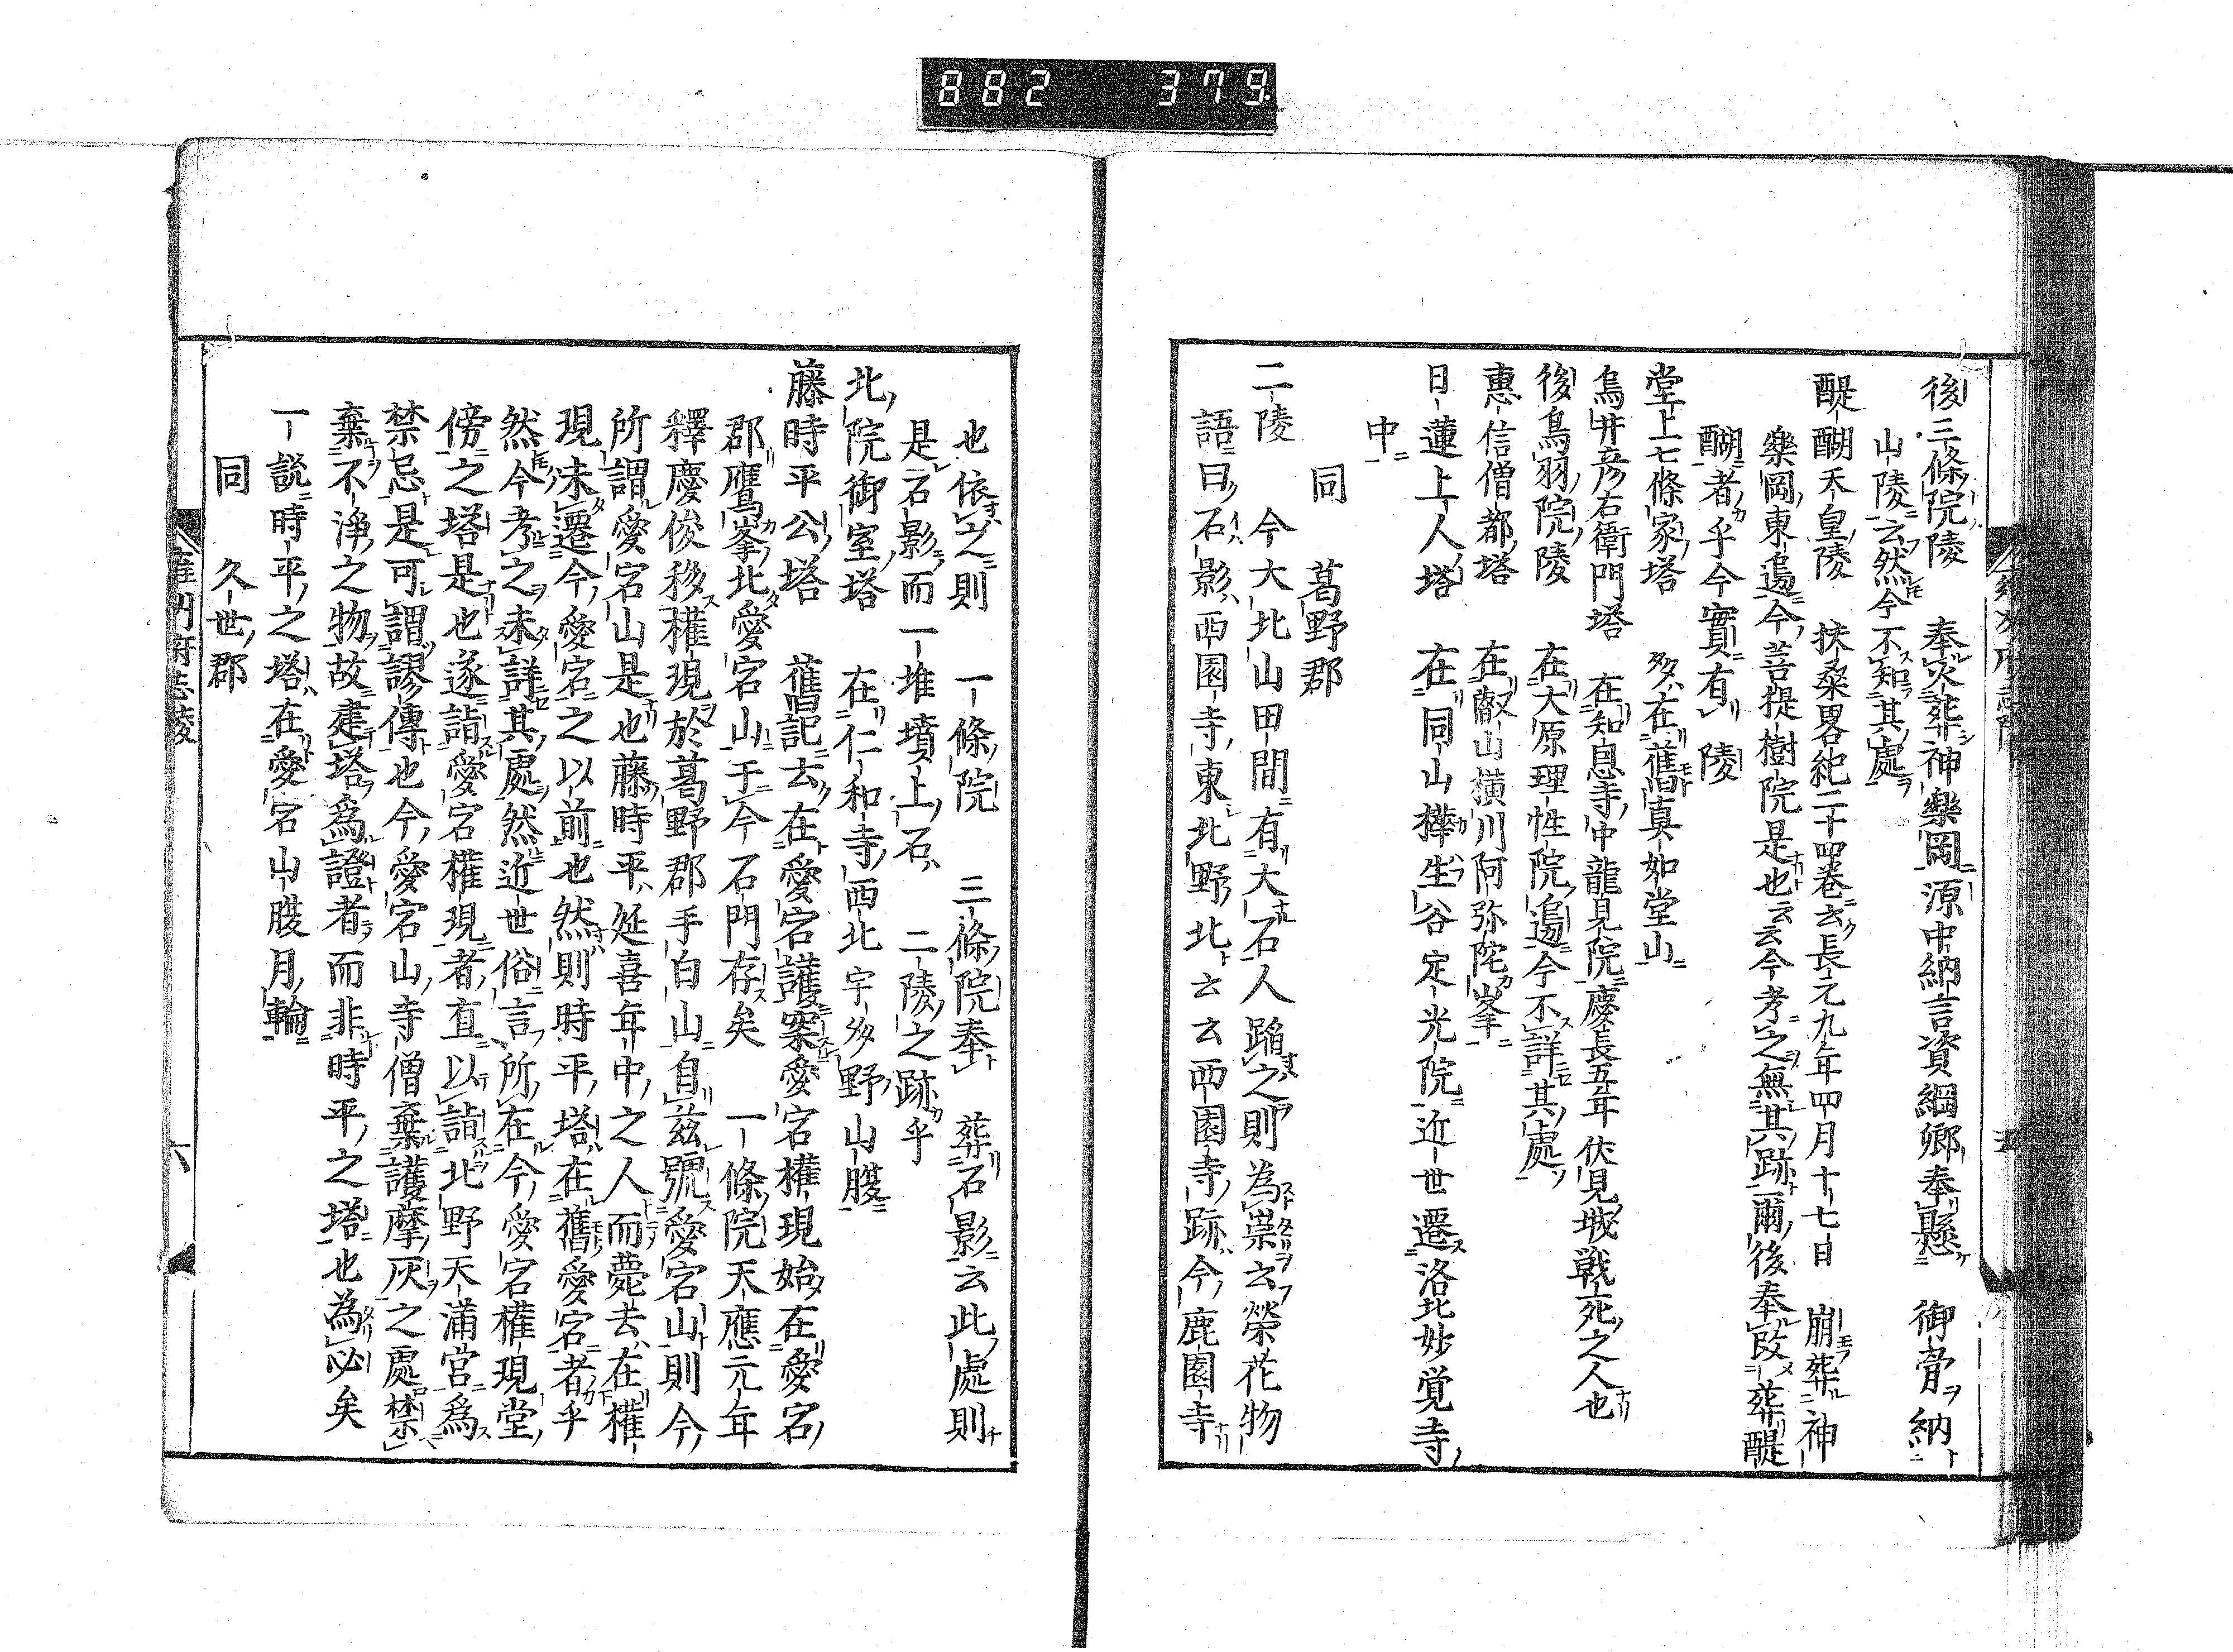 882 379
後三條院陵 奉火葬神樂岡源中納言資綱卿奉懸 御骨納
山陵云然今不知其處
醍醐天皇陵 扶桑畧紀二十四卷云長元九年四月十七日 崩葬神
樂岡東邊今菩提樹院是也云云今考之無其跡爾後奉改葬醍
醐者乎今實有陵
堂上七條家塔 多在舊真如堂山
鳥井彦右衛門塔 在知息寺中龍見院慶長五年伏見城戦死之人也
後鳥羽院陵 在大原理性院邊今不詳其處
惠信僧都塔 在叡山横川阿弥陀峯
日蓮上人塔 在同山樺生谷定光院近世遷洛北妙覚寺
中
同 葛野郡
二陵 今大北山田間有大石人蹈之則為崇云榮花物
語曰石影西園寺東北野北云云西園寺跡今鹿園寺
也依之則 一條院 三條院奉 葬石影云此處則
是石影而一堆墳上石 二陵之跡乎
北院御室塔 在仁和寺西北宇多野山腰
藤時平公塔 舊記云在愛宕護案愛宕權現始在愛宕
郡鷹峯北愛宕山于今石門存矣 一條院天應元年
釋慶俊移權現於葛野郡手白山自茲號愛宕山則今
所謂愛宕山是也藤時平延喜年中之人而薨去在權
現未遷今愛宕之以前也然則時平塔在舊愛宕者乎
然今考之未詳其處然近世俗言所在今愛宕權現堂
傍之塔是也遂詣愛宕權現者直以詣北野天滿宮爲
禁忌是可謂謬傳也今愛宕山寺僧棄護摩灰之處禁
棄不淨之物故建塔爲證者而非時平之塔也為必矣
一說時平之塔在愛宕山腰月輪
同 久世郡
雍州府志陵
六